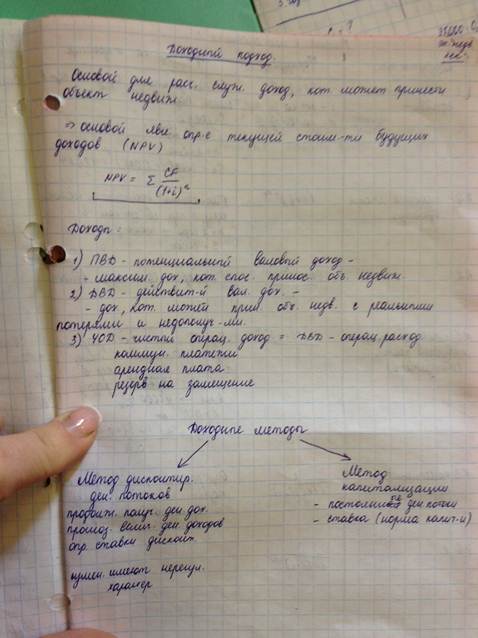 Доходный подход.
Основой для расч. служ. доход, кот. может принести
объект недвиж.
⇒ основой явл опр-е текущей стоим-ти будущих
доходов (NPV)
NPV = Σ CF/(1+i)ⁿ
Доходы:
1) ПВД - потенциальный валовый доход -
- максим. дох, кот. спос. принос. объ. недвиж.
2) ДВД - действит-й вал. дох. -
- дох, кот. может прин. объ. недв. с реальными
потерями и недополуч-ми.
3) ЧОД - чистый операц. доход = ДВД - операц. расход
коммун. платежи
арендная плата
резерв на замещение
Доходные методы
Метод дисконтир.
ден. потоков
продолж. получ. ден дох.
прогноз. велич. ден. доходов
опр. ставки дисконт.
имеют нерегул.
характер
Метод
капитализации
- постоянные ден потоки
- ставка (норма капит-и)